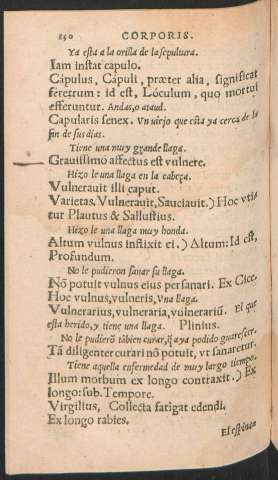 150 CORPORIS.
Ya esta a la orilla de la sepultura.
Iam instat capulo.
Cápulus, Cápuli, præter alia, significat
feretrum: id est, Lóculum, quo mortui
efferuntur. Andas, o ataud.
Capularis senex. Vn viejo que esta ya cerca de la
fin de sus dias.
Tiene una muy grande llaga.
Grauissimo affectus est vulnere.
Hizo le vna llaga en la cabeça.
Vulnerauit illi caput.
Varietas. Vulnerauit, Sauciauit.) Hoc vtitur
tur Plautus & Sallustius.
Hizo le vna llaga muy honda.
Altum vulnus inflixit ei.) Altum: Id est,
Profundum.
No le pudieron sanar su llaga.
Nō potuit vulnus eius persanari. Ex Cice.
Hoc vulnus, vulneris, Vna llaga.
Vulnerarius, vulneraria, vulnerariū. El que
esta herido, y tiene vna llaga. Plinius.
No le pudierō tābien curar, q̄ aya podido guarescer.
Tā diligenter curari nō potuit, vt sanaretur.
Tiene aquella enfermedad de muy largo tiempo.
Illum morbum ex longo contraxit.) Ex
longo: sub. Tempore.
Virgilius, Collecta fatigat edendi,
Ex longo rabies.
El espinen